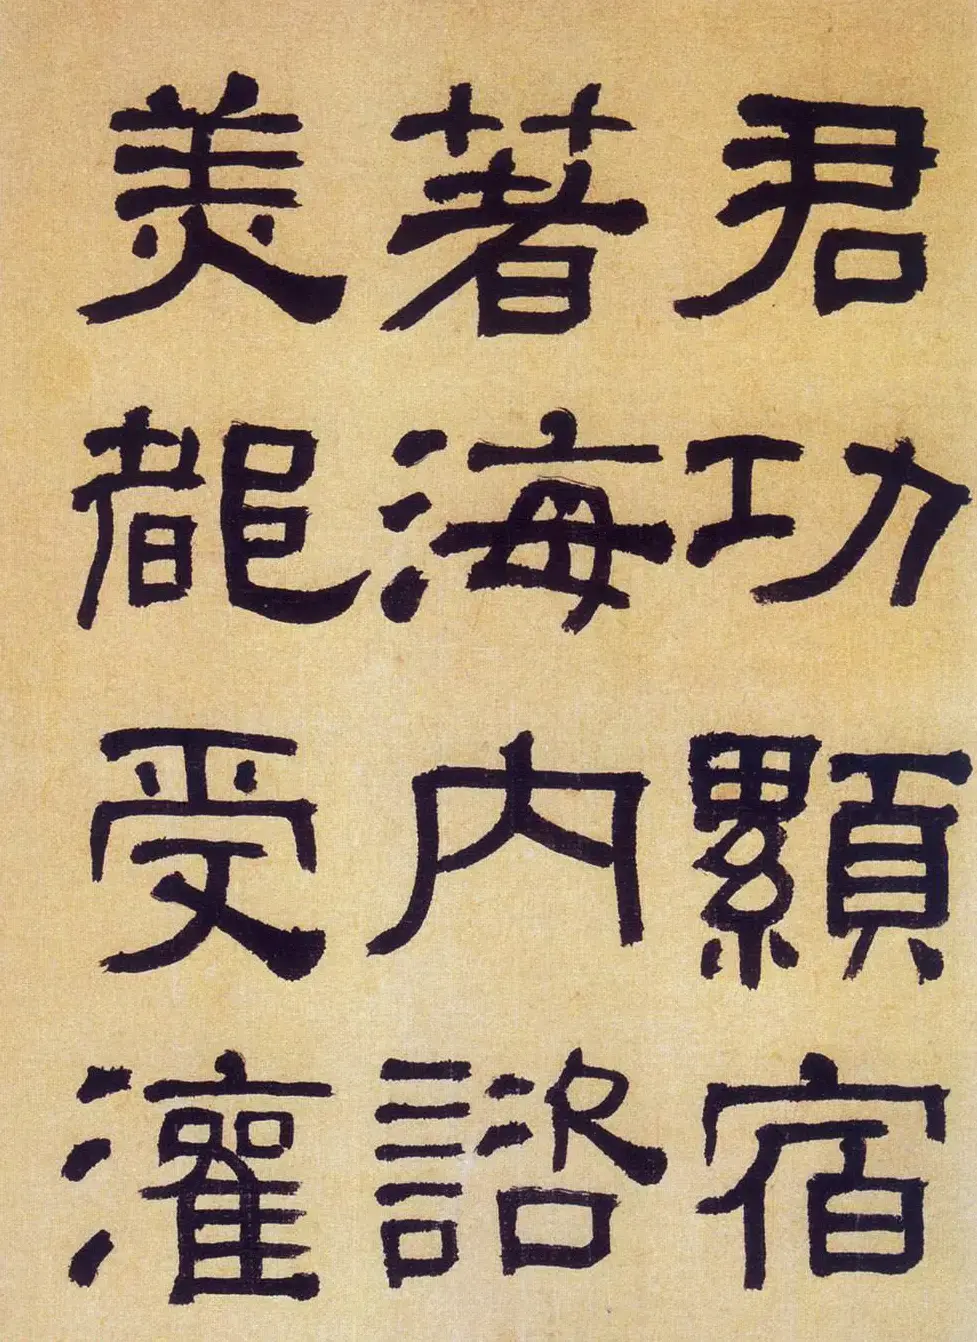 君功顯宿
著海内諮
美都受灌